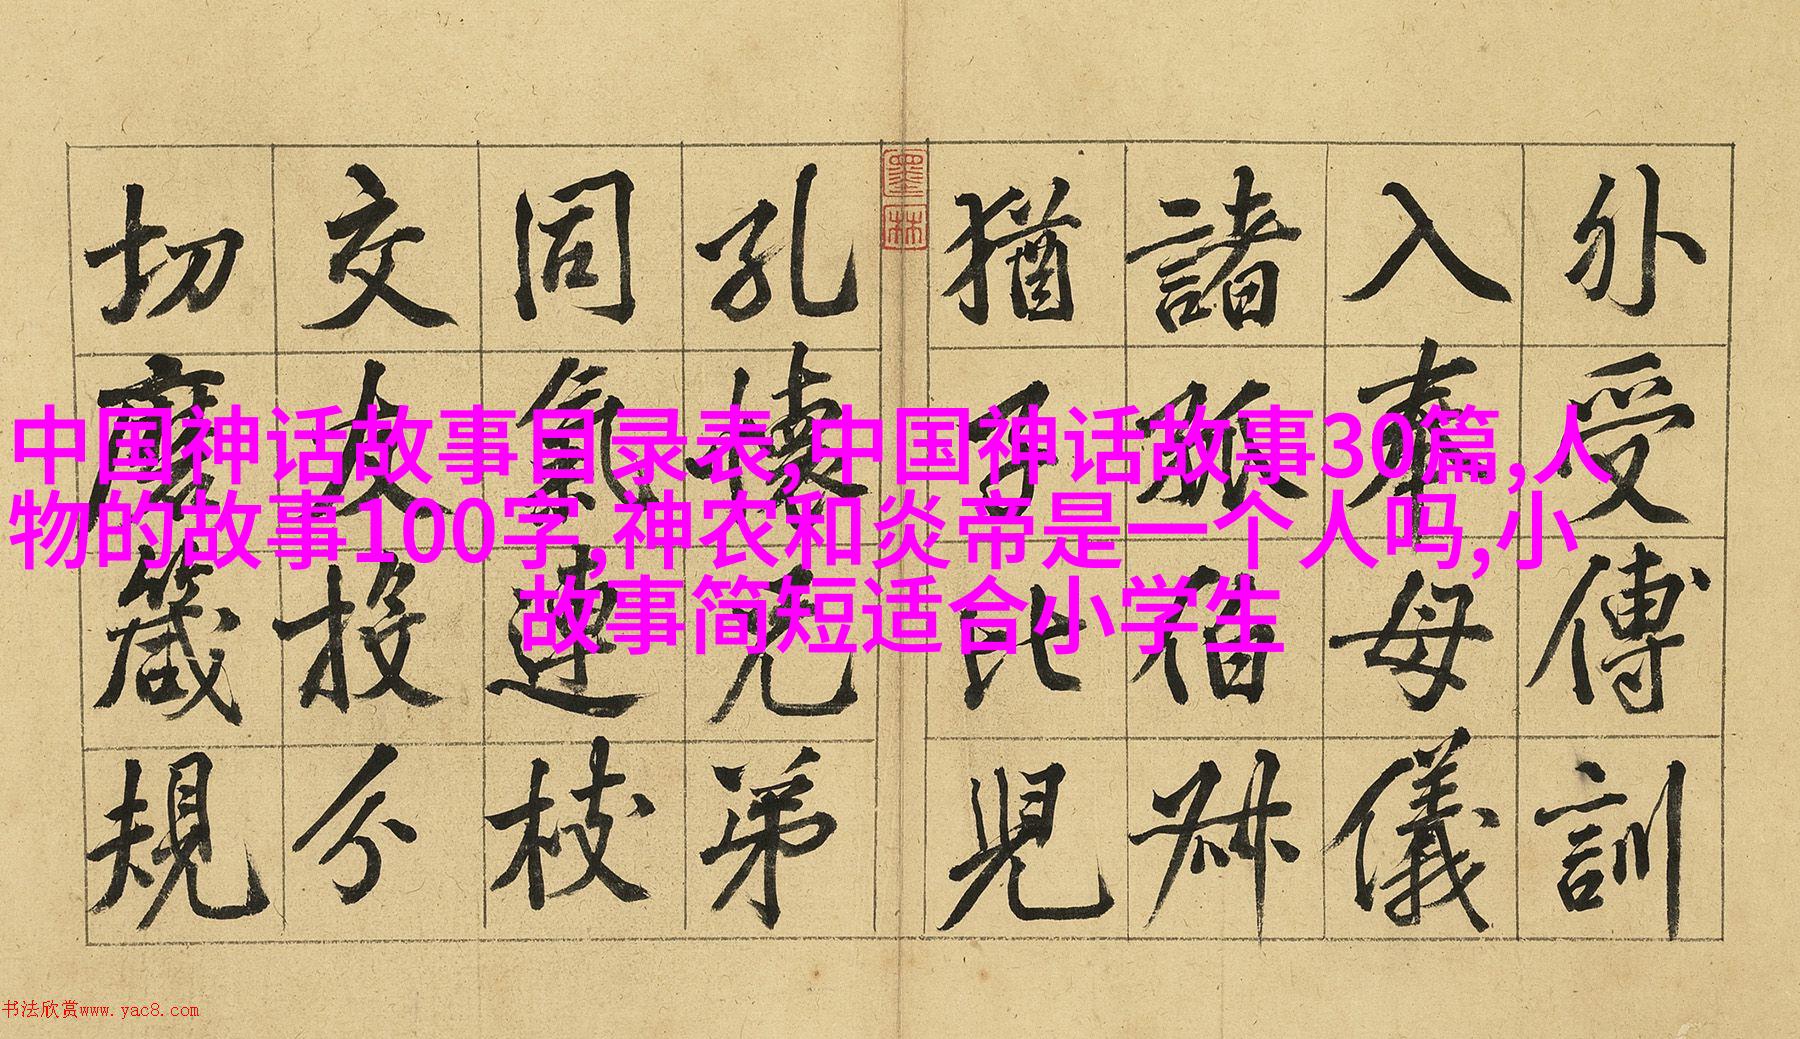 外受傅訓
入奉母儀
諸姑伯叔
猶子比兒
墨林
孔懷兄弟
同氣連枝
交友投分
切磨箴規
中国神话故事目录表,中国神话故事30篇,人
物的故事100字,神农和炎帝是一个人吗,小
故事简短适合小学生
书法欣赏www.yac8.com